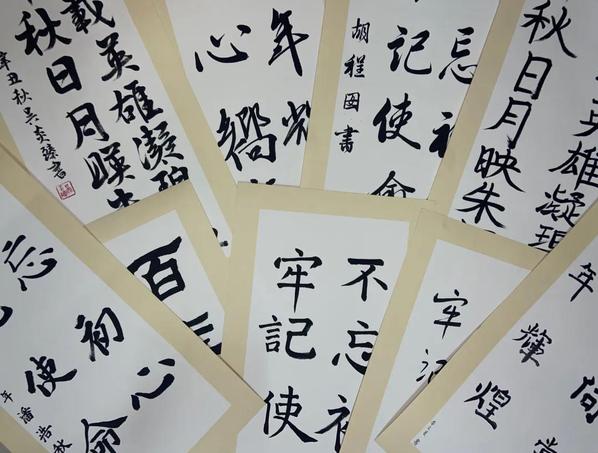 載英雄凝碧
秋日月暎
辛丑秋吴
書
年
心嚮
忘初
记使命
胡程国書
英雄凝
秋日月映朱
初心
忘
使命
年潘浩秋
百年
不忘初
牢記使
牢记
年輝煌